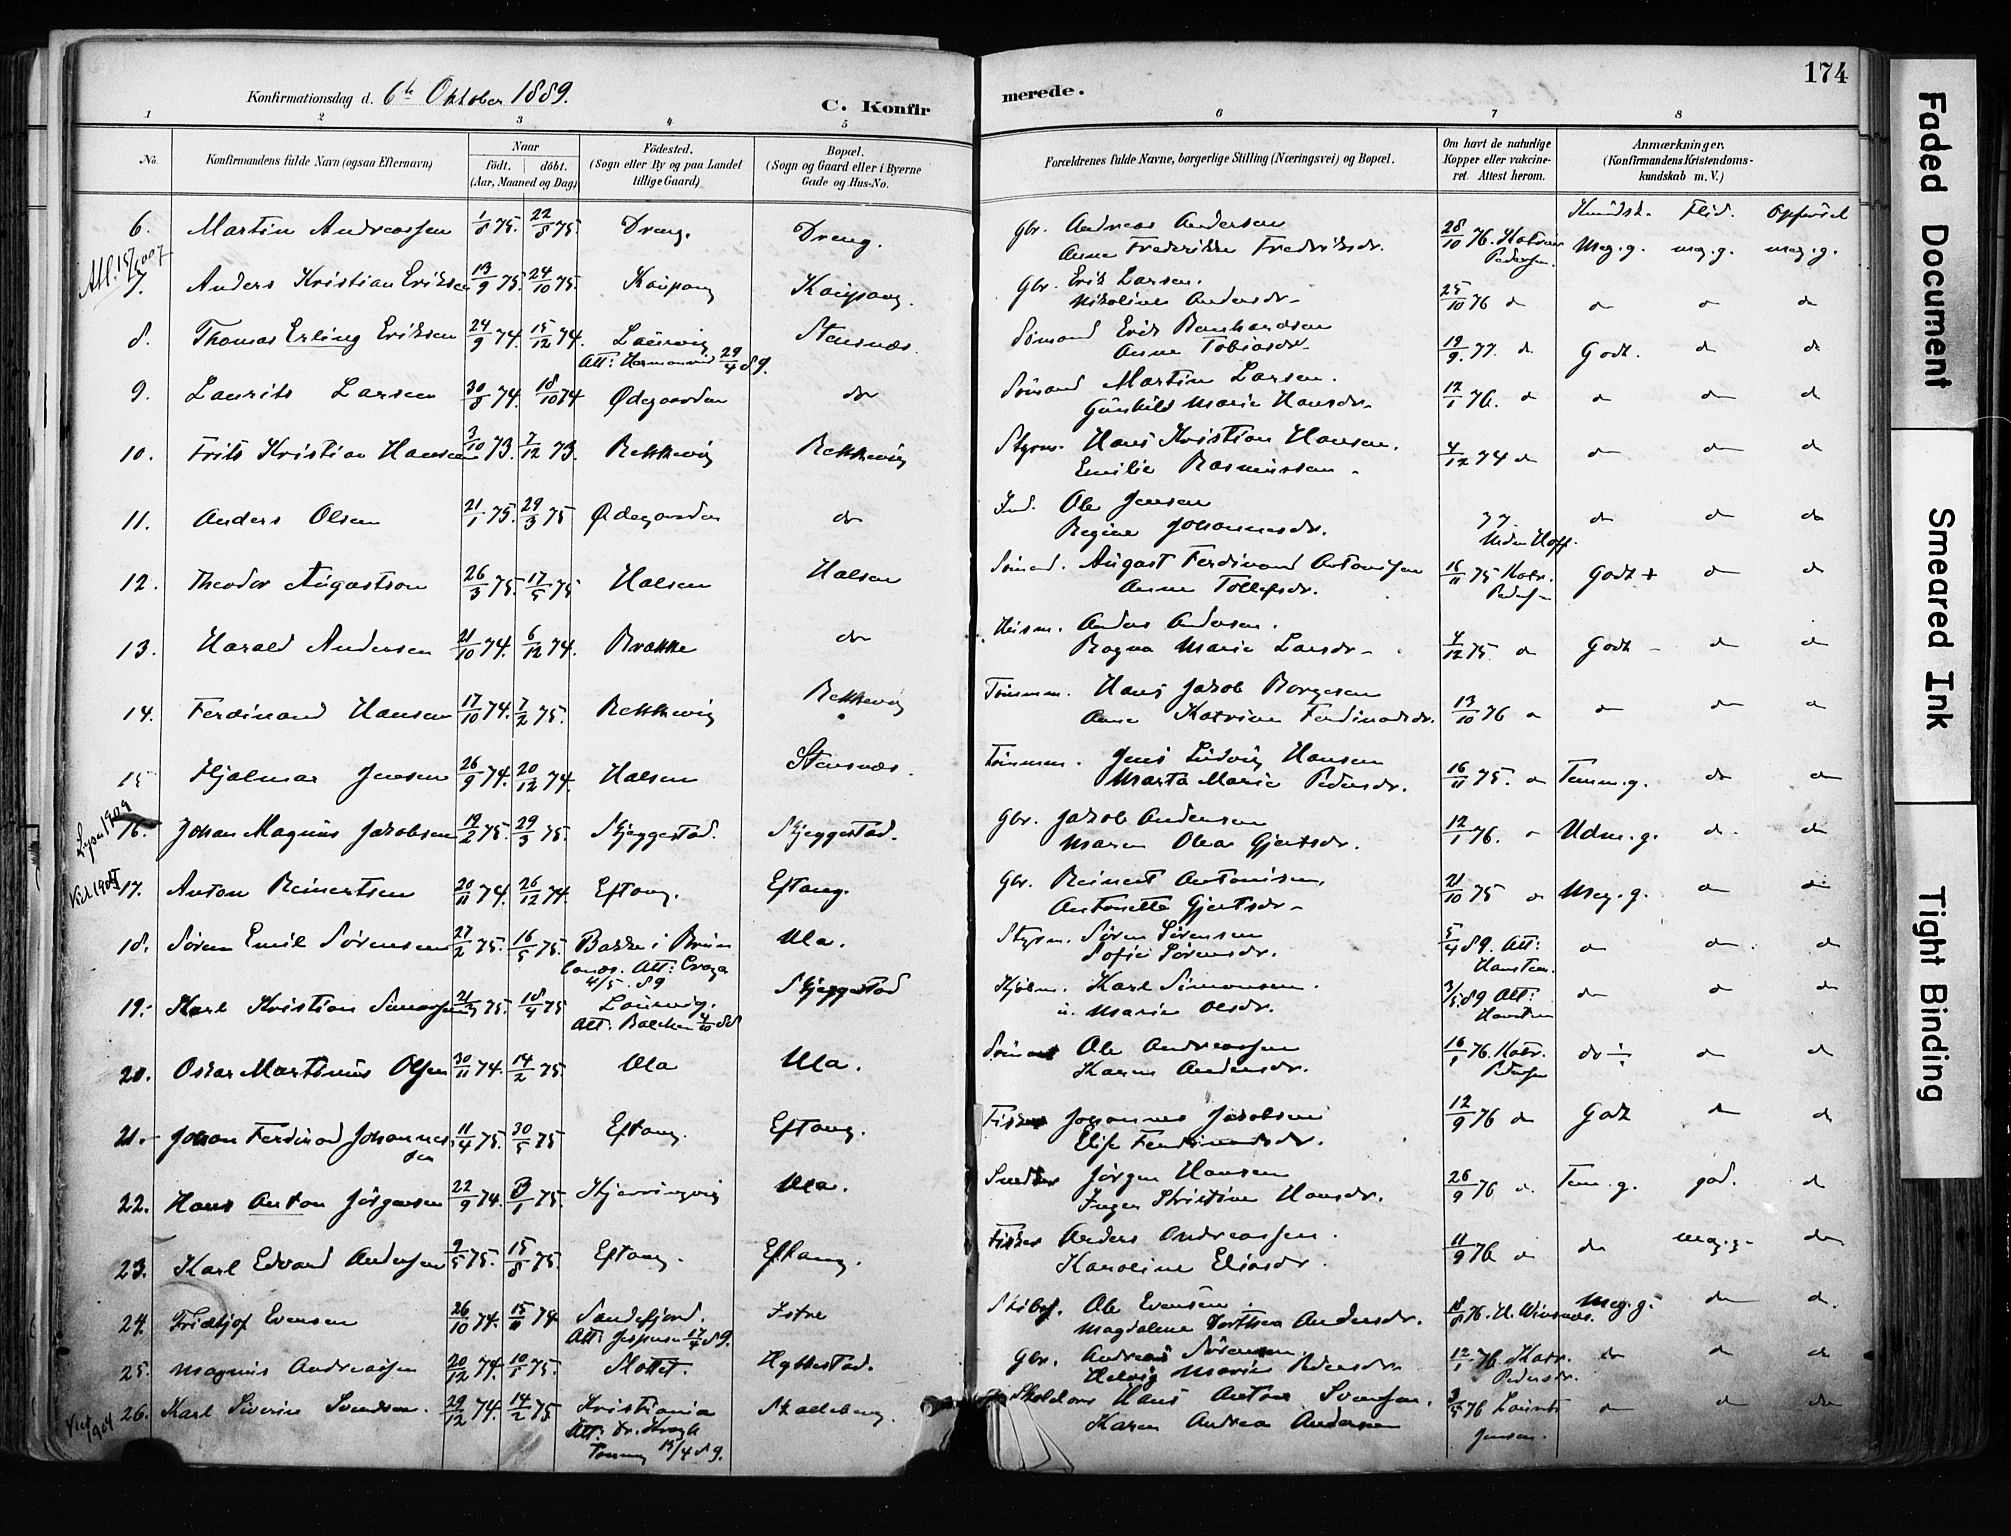 174
Konfirmationsdag d. 6te Oktober 1889.
C. Konfir
merede.
1 2 3 4 5 6 7 8
No.
Konfirmandens fulde Navn (ogsaa Efternavn)
Naar
født. døbt.
(Aar, Maaned og Dag)
Fødested.
(Sogn eller By og paa Landet
tillige Gaard)
Bopæl.
(Sogn og Gaard eller i Byerne
Gade og Hus-No.
Forældrenes fulde Navne, borgerlige Stilling (Næringsvei) og Bopæl.
Om havt de naturlige
Kopper eller vakcine-
ret. Attest herom.
Anmærkninger.
(Konfirmandens Kristendoms-
kundskab m. V.)
Kundsk. Flid. Opførsel
6. Martin Andreassen 1/8 75. 22/8 75 Dreng. Dreng. Gbr. Andreas Andersen
Anne Frederikke Frederiksdr. 28/10 76. Katrine Pedersen. Meg.g. meg.g. meg.g.
7. Anders Kristian Eriksen 13/9 75. 24/10 75. Kaupang Kaupang. Gbr. Erik Larsen.
Nikoline Andersdr. 25/10 76 do do do do
8. Thomas Erling Eriksen 24/9 74. 15/12 74. Laurvig Stensnæs. Sømand Erik Bernhardsen
Att: 29/4 89. Anne Tobiasdr. 19/9 77. do Godt. do do
9. Laurits Larsen 30/8 74. 18/10 74 Ødegaarden do Sømand Martin Larsen.
Gunhild Marie Hansdr. 12/1 76. do do do do
10. Frits Kristian Hansen 3/10 73. 7/12 73. Rekkevig Rekkevig Styrm. Hans Kristian Hansen.
Emilie Rasmussen. 4/12 74 do do do do
11. Anders Olsen 21/1 75. 29/3 75 Ødegaarden do Ind. Ole Jensen
Regine Johannesdr. 77. do do do
12. Theodor Augustson 26/3 75. 17/5 75 Halsen Halsen Sømand. August Ferdinand Antonisen
Anne Tollefsdr. 16/11 75 Katr. Pedersen Godt + do do
13. Harald Andersen 21/10 74. 6/12 74. Brække do Husm. Anders Andersen.
Ragna Marie Larsdr. 4/12 75. do Godt - do do
14. Ferdinand Hansen 17/10 74. 7/2 75. Rekkevig Rekkevig Tømmerm. Hans Jakob Borgesen
Anne Katrine Ferdinandsdr. 13/10 76 do do do do
15 Hjalmar Jensen 26/9 74. 20/12 74. Halsen Stensnæs. Tømmerm. Jens Ludvig Hansen
Marta Marie Pedersdr. 16/11 75. do Temm.g. do do
16. Johan Magnus Jakobsen 19/2 75. 29/3 75. Skjeggestad. Skjeggestad. Gbr. Jakob Andersen
Maren Olea Gjertsdr. 12/1 76. do Udm.g. do do
17. Anton Reinertsen 20/11 74. 26/12 74. Eftang. Eftang. Gbr. Reinert Antonisen.
Antonette Gjertsdr. 21/10 75 do Meg.g. do do
18. Søren Emil Sørensen 27/2 75. 16/5 75. Bakke i Brun
lanæs. Att: 4/5 89 Ula. Styrm. Søren Sørensen
Sofie Sørensdr. 5/4 89. Att: do do do
19. Karl Kristian 75. 18/4 75 Laurvig. Skjeggestad Karl Simonsen.
Att: Marie Olsdr. 3/5 89 Att: do do do
20. Oskar Martinius Olsen 30/11 74. 14/2 75. Ula Ula. Sømand Ole Andreassen
Karen Andersdr. 16/1 76. Katr. Pedersen do ÷ do do
21. Johan Ferdinad Johannes-
sen 11/4 75. 30/5 75 Eftang. Eftang. Fisker Johannes Jakobsen
Elise Ferdinandsdr. 12/9 76 do Godt do do
22. Hans Anton Jörgensen 22/9 74. 3/1 75. Kjerringvig Ula. Jörgen Hansen
Inger Kristine Hansdr. 26/9 76 do Tem.g. god. do
23. Karl Edvard Andersen 9/5 75. 15/8 75. Eftang. Eftang. Fisker Anders Andreassen.
Karoline Eliasdr. 11/9 76 do do meg.g. do
24. Fridtjof Evensen 26/10 74. 15/11 74 Sandefjord. Istre Ole Evensen.
Att: Jespersen 17/4 89. Magdalene Dorthea Andersdr. 18/8 76. Meg.g. do do
25. Magnus Andreassen 20/12 74. 10/1 75. Slottet. Hybbestad. Gbr. Andreas Sörensen
Helvig Marie Pedersdr. 12/1 76. Katr. Pedersdr. do do do
26. Karl Siverin Svendsen. 29/12 74. 14/2 75. Kristiania Skalleberg. Hans Anton Svensen.
Att: Dr. Krogh 13/4 89. Karen Andrea Andersen 3/5 76 Laurits Jensen. do do do
Faded Document
Smeared Ink
Tight Binding